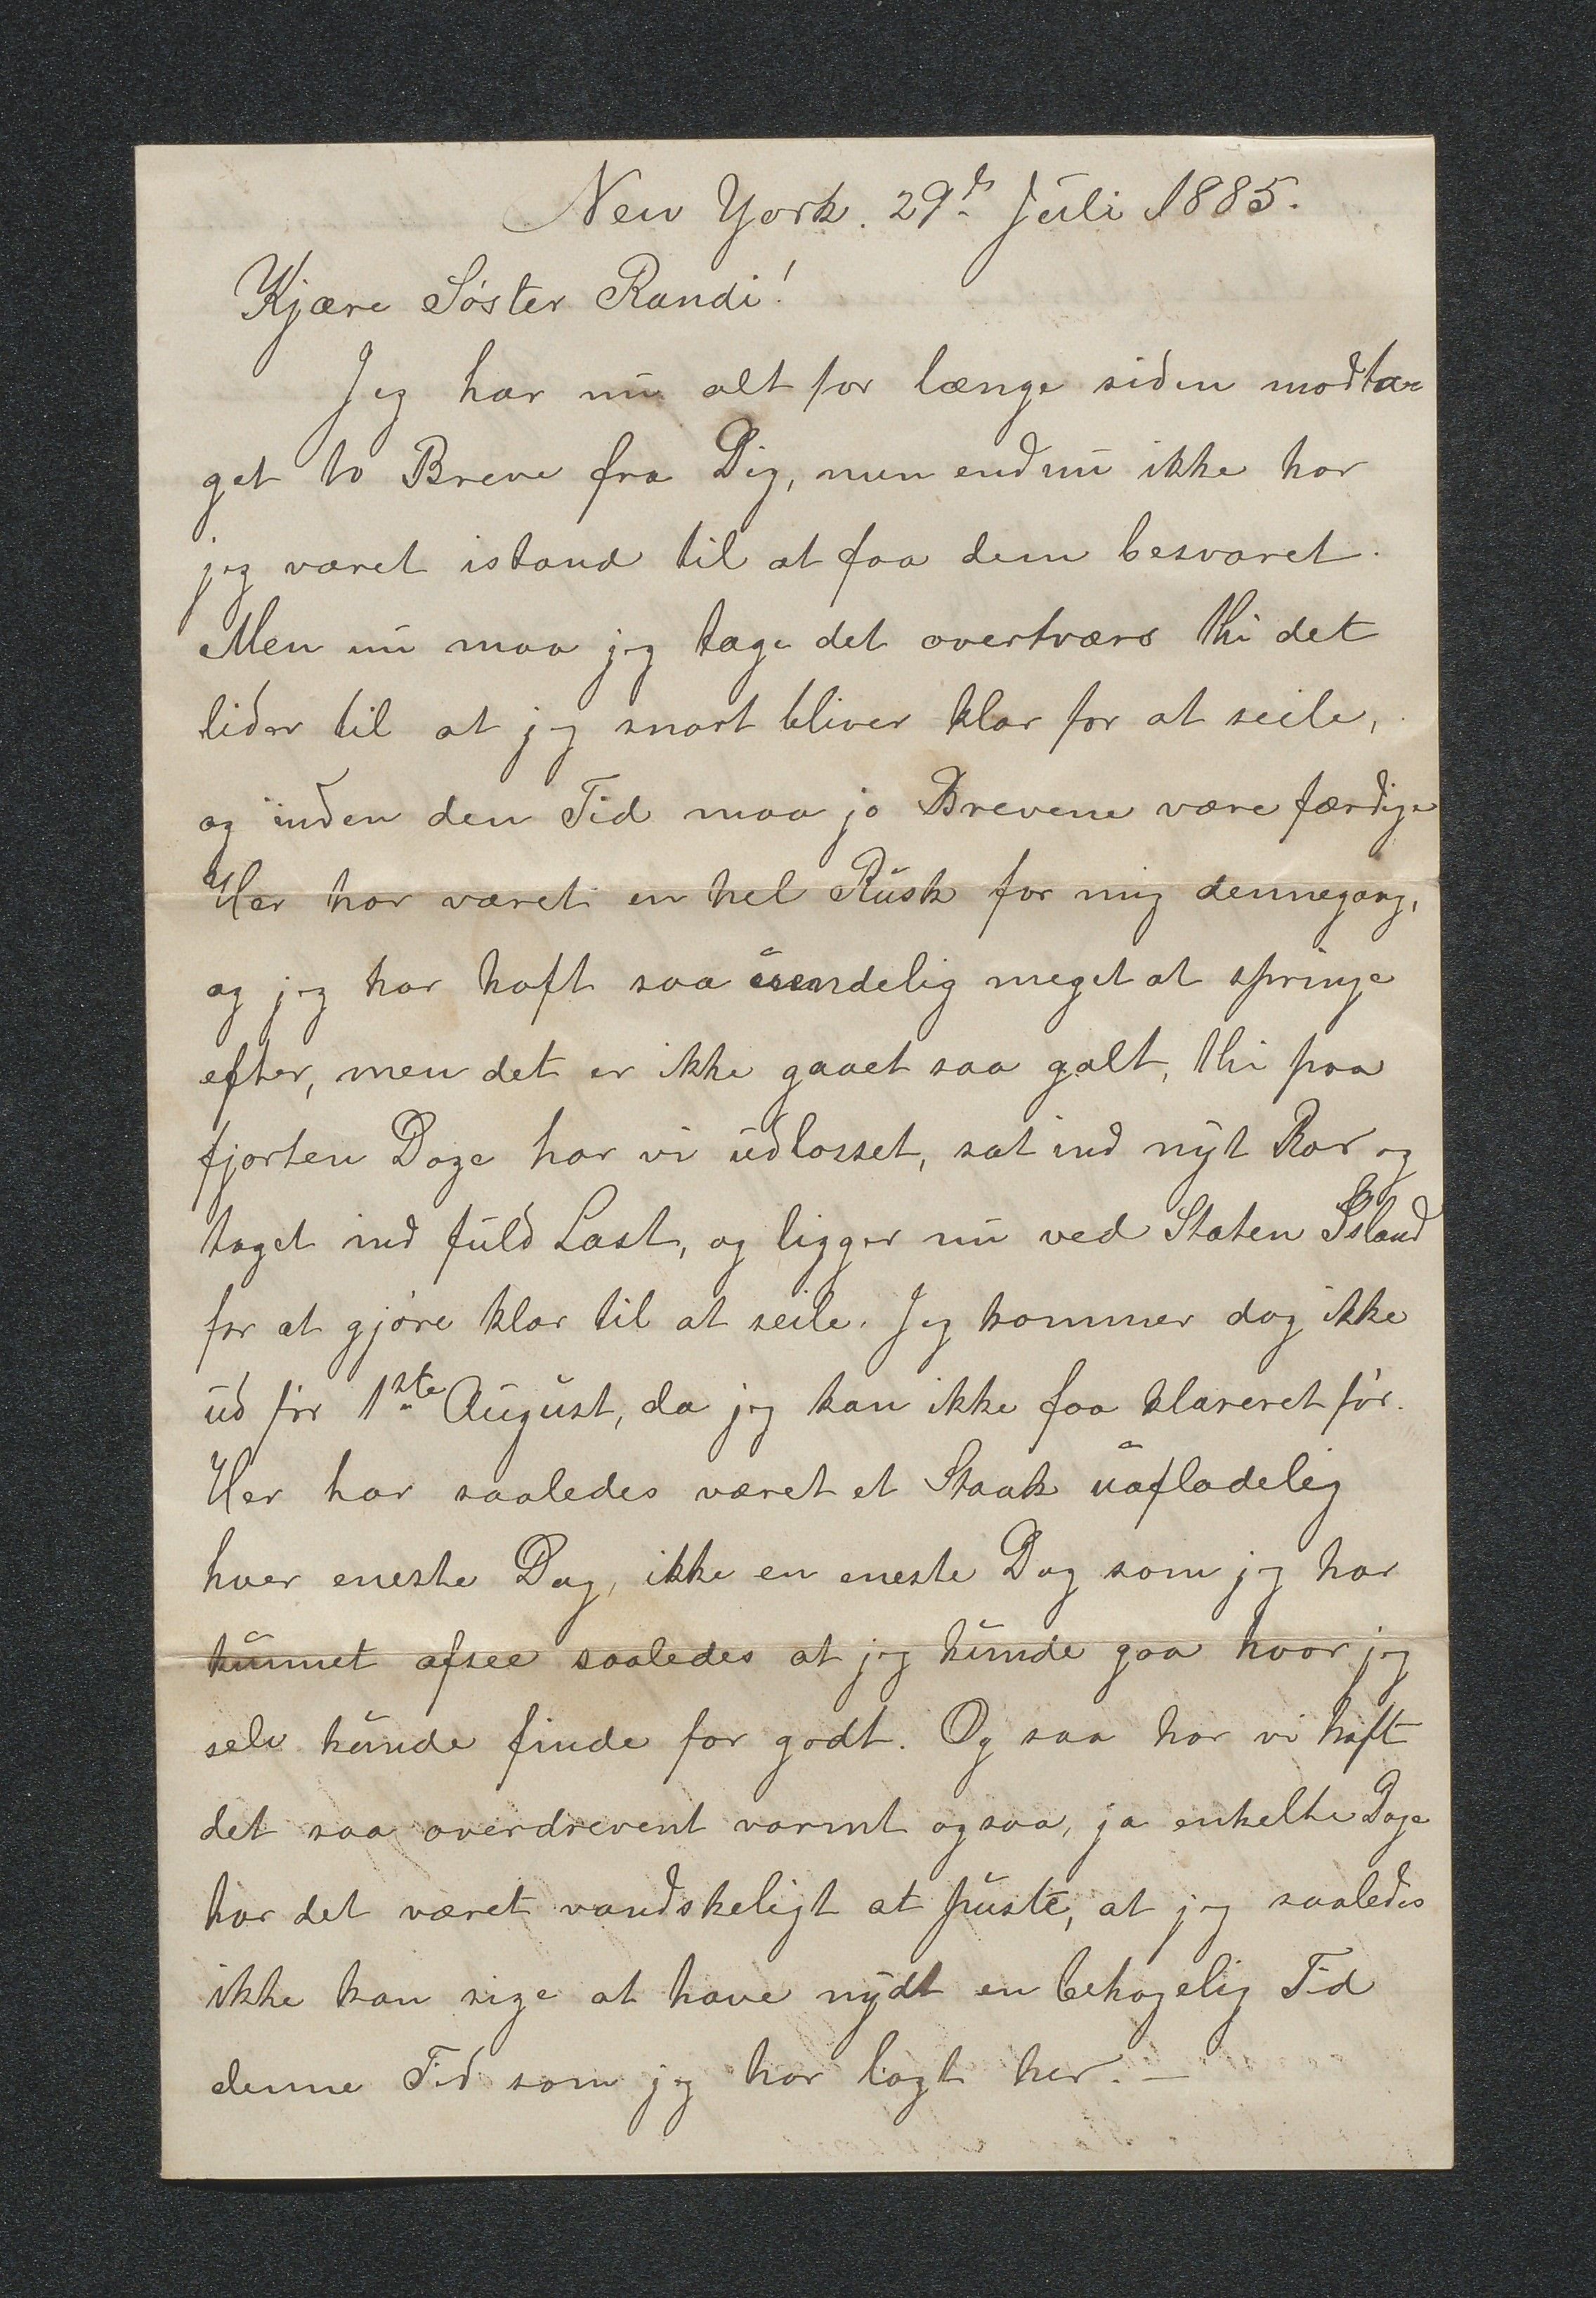 New York. 29de Juli 1885.
Kjære Søster Randi!
Jeg har nu alt for længe siden modta-
get to Breve fra Dig, men endnu ikke har
jeg været istand til at faa dem besvaret.
Men nu maa jeg tage det overtværs thi det
lider til at jeg snart bliver klar for at seile,
og inden den Tid maa jo Brevene være færdige
Her har været en hel Rusk for mig dennegang,
og jeg har haft saa uendelig meget at springe
efter, men det er ikke gaaet saa galt, thi paa
fjorten Dage har vi udlosset, sat ind nyt Ror og
taget ind fuld Last, og ligger nu ved Staten Island
for at gjøre klar til at seile. Jeg kommer dog ikke
ud før 1ste August, da jeg kan ikke faa klareret før.
Her har saaledes været et Staak uafladelig
hver eneste Dag, ikke en eneste Dag som jeg har
kunnet afsee saaledes at jeg kunde gaa hvor jeg
selv kunde finde for godt. Og saa har vi haft
det saa overdrevent varmt ogsaa, ja enkelte Dage
har det været vandskeligt at puste, at jeg saaledes
ikke kan sige at have nydt en behagelig Tid
denne Tid som jeg har lagt her. —